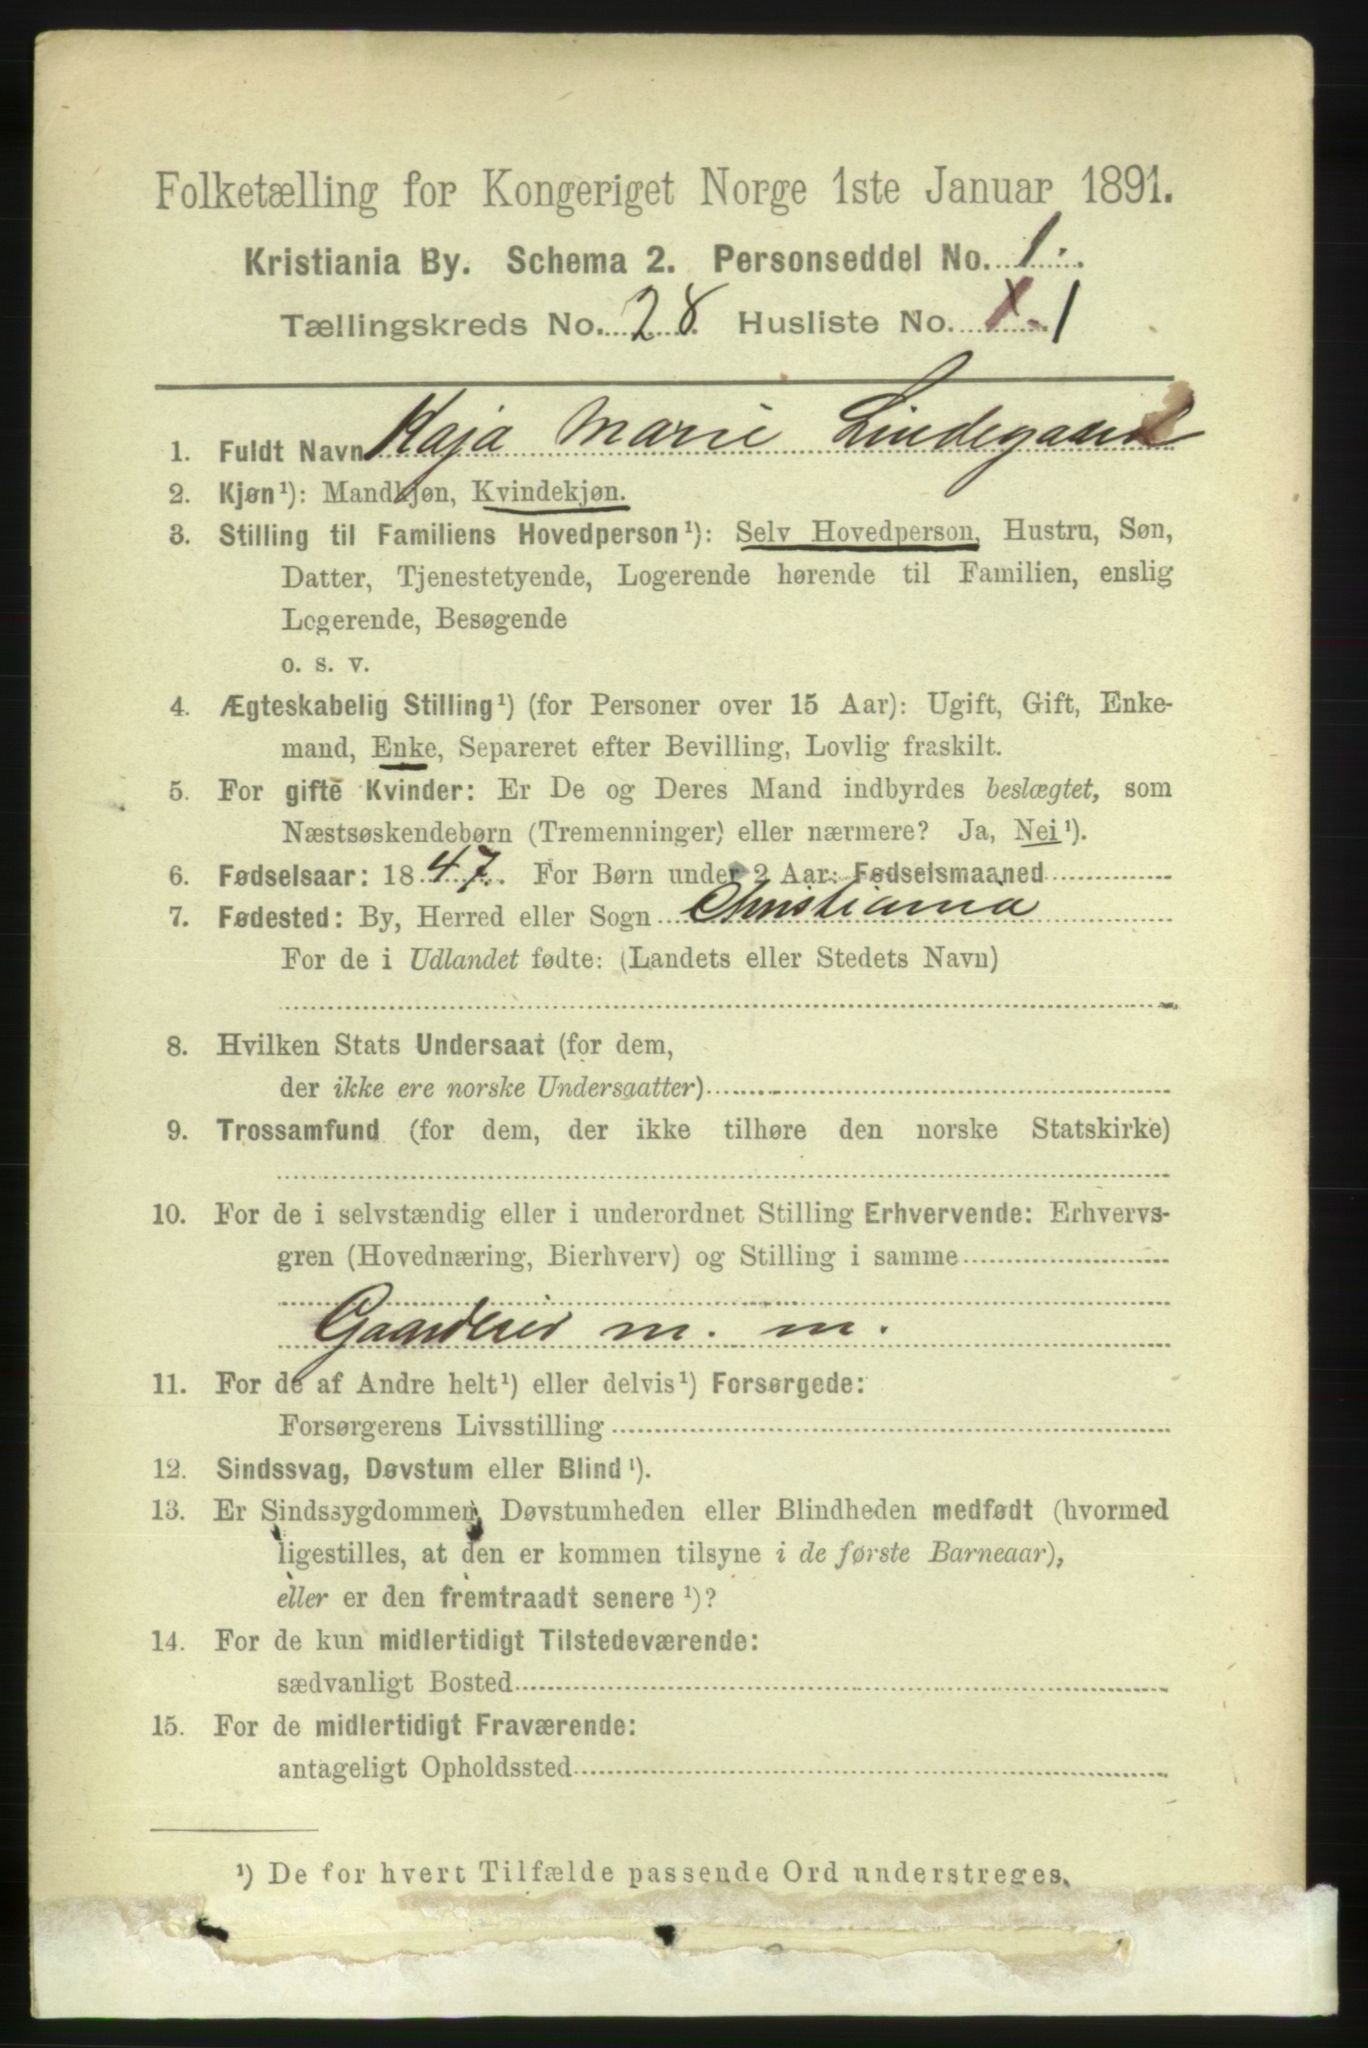 Folketælling for Kongeriget Norge 1ste Januar 1891.
Kristiania By. Schema 2. Personseddel No. 1.
Tællingskreds No. 28 Husliste No. 1
1. Fuldt Navn Kaja Marie Lindegaard
2. Kjøn¹): Mandkjøn, Kvindekjøn.
3. Stilling til Familiens Hovedperson¹): Selv Hovedperson, Hustru, Søn,
Datter, Tjenestetyende, Logerende hørende til Familien, enslig
Logerende, Besøgende
o. s. v.
4. Ægteskabelig Stilling¹) (for Personer over 15 Aar): Ugift, Gift, Enke-
mand, Enke, Separeret efter Bevilling, Lovlig fraskilt.
5. For gifte Kvinder: Er De og Deres Mand indbyrdes beslægtet, som
Næstsøskendebørn (Tremenninger) eller nærmere? Ja, Nei¹).
6. Fødselsaar: 1847. For Børn under 2 Aar: Fødselsmaaned
7. Fødested: By, Herred eller Sogn Christiania
For de i Udlandet fødte: (Landets eller Stedets Navn)
8. Hvilken Stats Undersaat (for dem,
der ikke ere norske Undersaatter)
9. Trossamfund (for dem, der ikke tilhøre den norske Statskirke)
10. For de i selvstændig eller i underordnet Stilling Erhvervende: Erhvervs-
gren (Hovednæring, Bierhverv) og Stilling i samme
Gaardeier m. m.
11. For de af Andre helt¹) eller delvis¹) Forsørgede:
Forsørgerens Livsstilling
12. Sindssvag, Døvstum eller Blind¹).
13. Er Sindssygdommen, Døvstumheden eller Blindheden medfødt (hvormed
ligestilles, at den er kommen tilsyne i de første Barneaar),
eller er den fremtraadt senere¹)?
14. For de kun midlertidigt Tilstedeværende:
sædvanligt Bosted
15. For de midlertidigt Fraværende:
antageligt Opholdssted
¹) De for hvert Tilfælde passende Ord understreges.